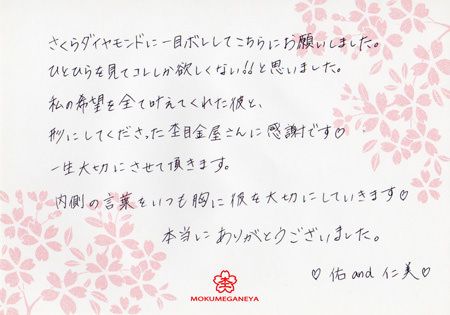 さくらダイヤモンドに一目ボレしてこちらにお願いしました。
ひとひらを見てコレしか欲しくない!!と思いました。
私の希望を全て叶えてくれた彼と、
形にしてくださった杢目金屋さんに感謝です♡
一生大切にさせて頂きます。
内側の言葉をいつも胸に彼を大切にしていきます♡
本当にありがとうございました。
♡ 佑 and 仁美 ♡
MOKUMEGANEYA